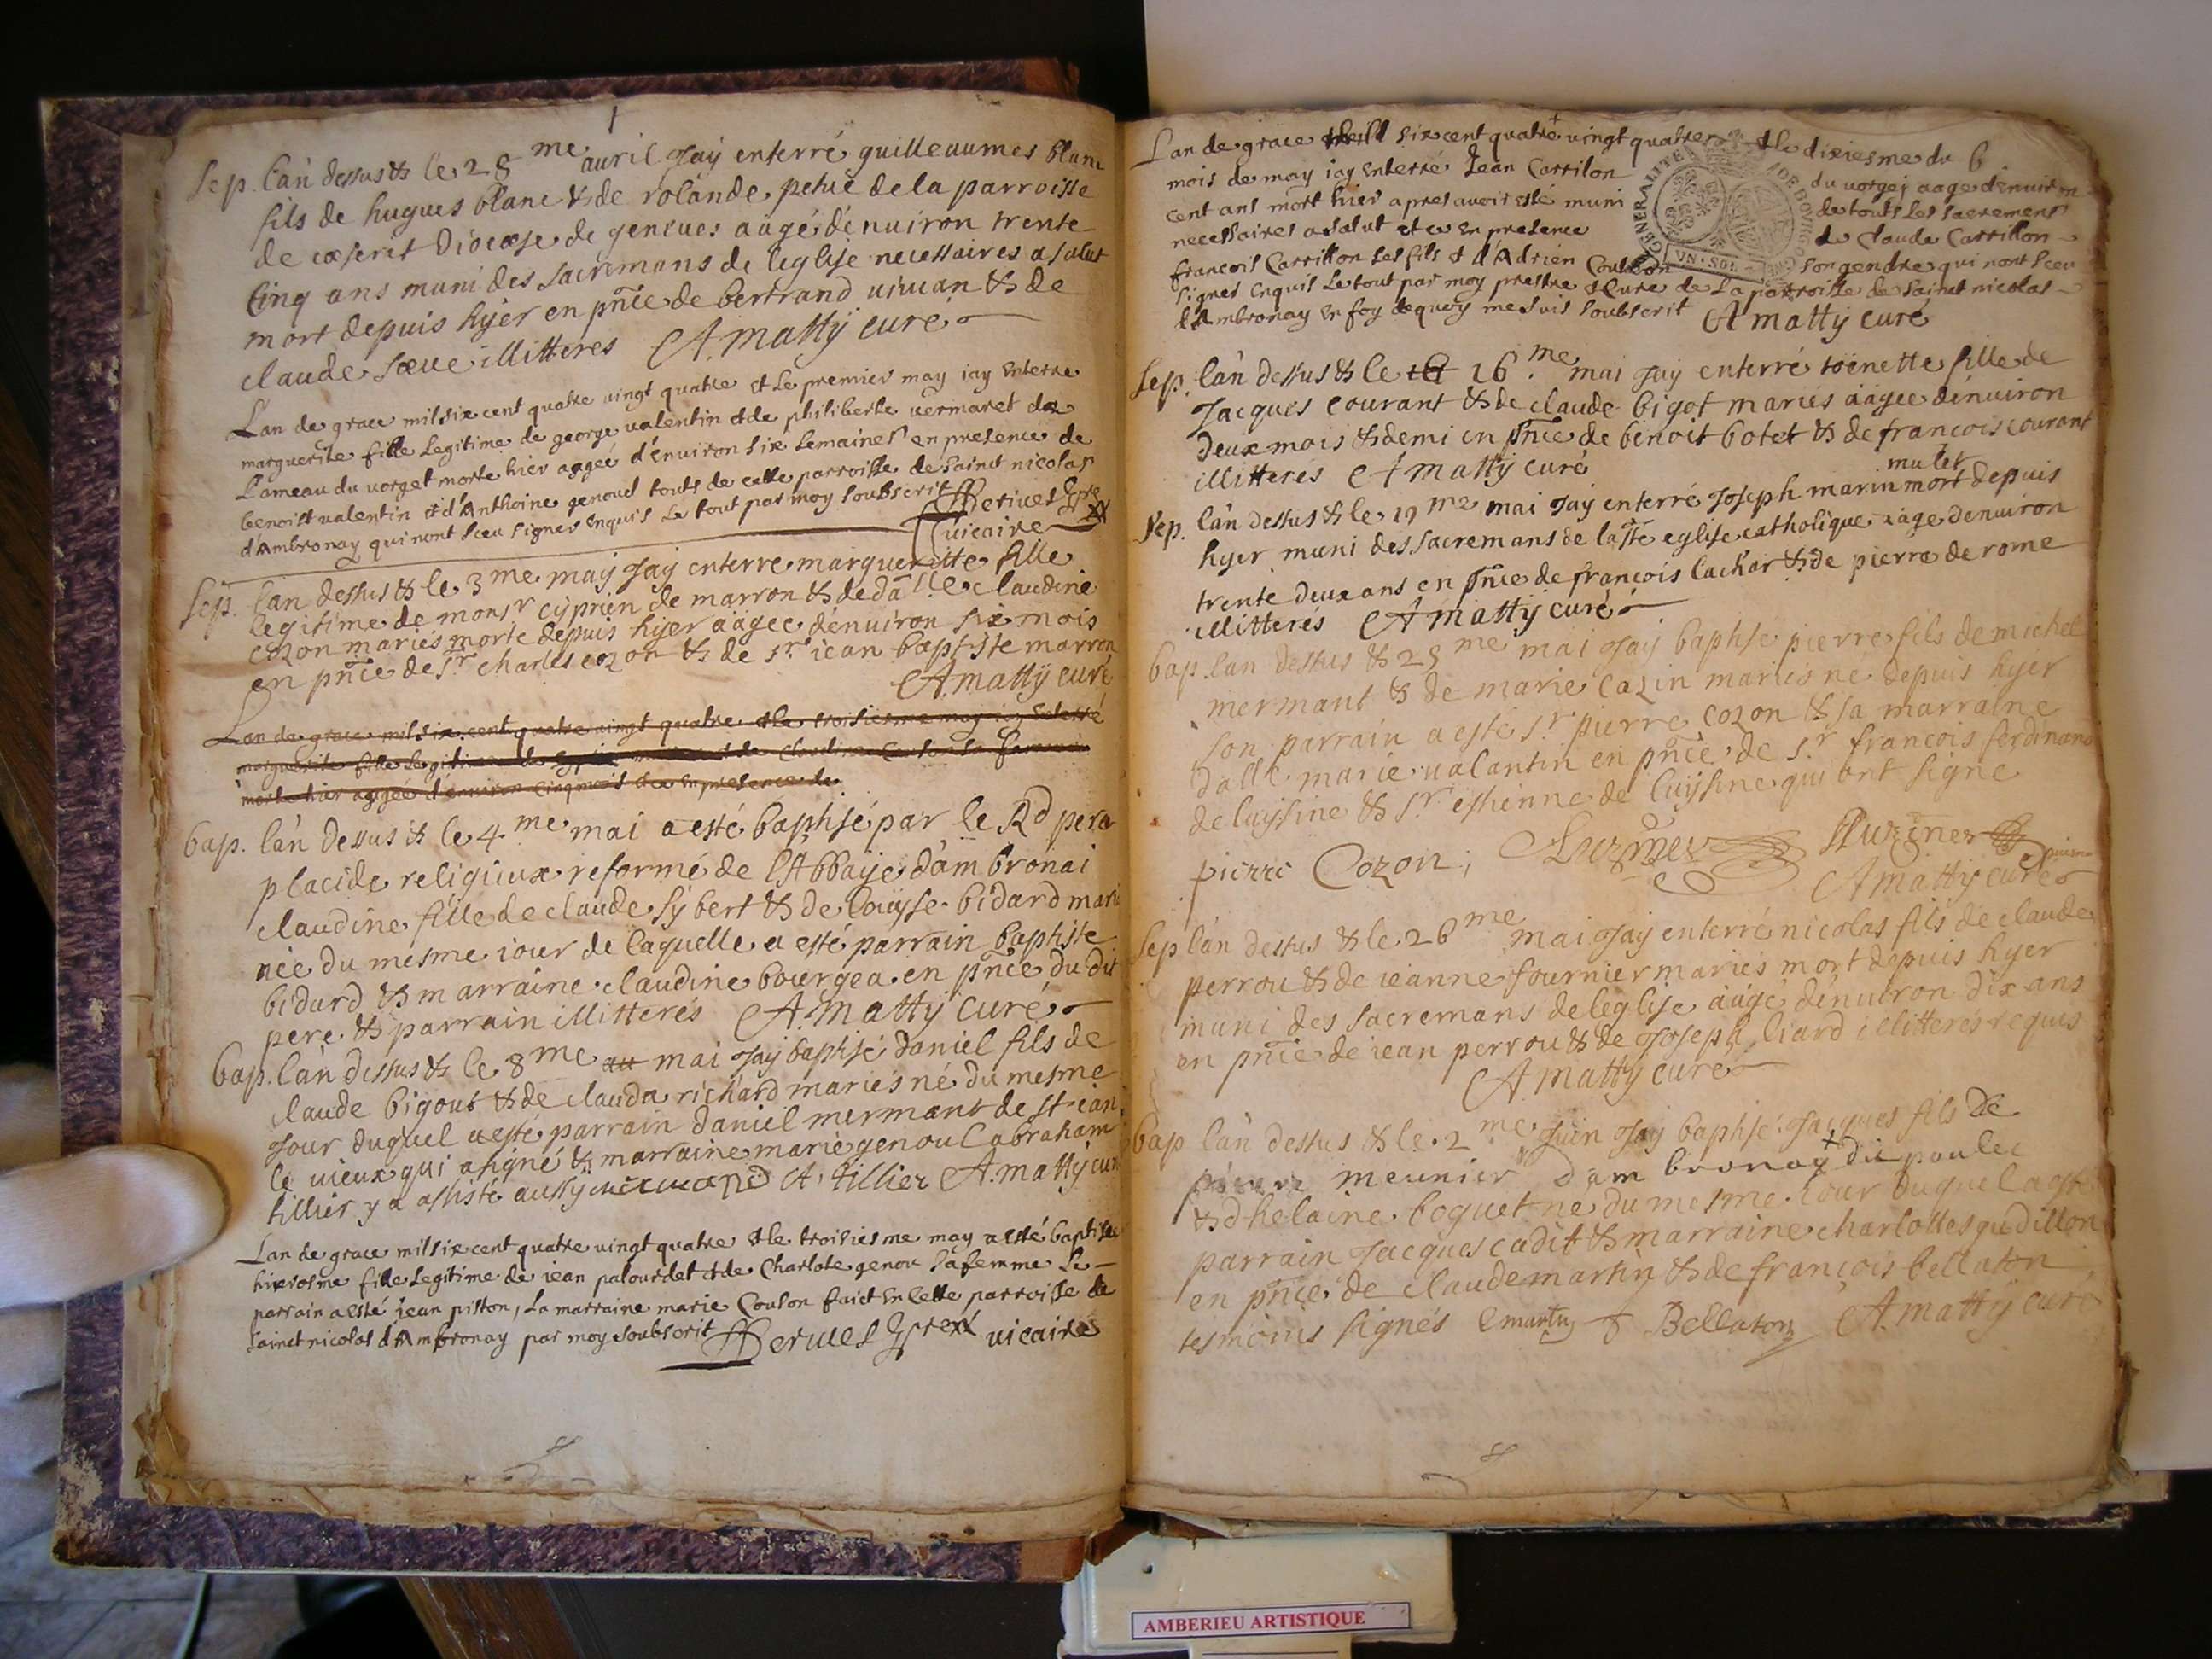 Sep. lán dessus & le 28 me auril Jaÿ enterré guilleaumes blanc
fils de hugues blanc & de rolande petue de la parroisse
de Diocæse de geneues aágé dénuiron trente
Cinq ans muni des sacremans de léglise necessaires a salut
mort depuis hÿer en pñce de bertrand uiuian & de
claude sæue illitteres A. mattÿ curé
Lan de grace mil six cent quatre uingt quatre et le premier may iay enterre
marguerite fille legitime de george ualentin et de philiberte uermaret du
Lameau du uorget morte hier aagée d'enuiron six semaines en presence de
benoist ualentin et d'Anthoine genoud touts de cette parroisse de sainct nicolas
d'Ambronay qui n'ont sceu signer enquis le tout par moy soubscrit
uicaire
Sep. lán dessus & le 3 me maÿ Jaÿ enterre marguerite fille
legitime de monsr cÿprien de marron & de dalle claudine
cozon mariés morte depuis hÿer aágée dénuiron six mois
en pñce de sr charles cozon & de sr iean baptiste marron
A. mattÿ curé
Lan de grace mil six cent quatre uingt quatre et le troisiesme may iay enterré
marguerite fille legitime de et de Claudine
morte hier aagée d'enuiron cinq mois en presence de
bap. lán dessus & le 4 me mai a esté baptisé par le Rd pere
placide religieux reformé de lAbbaÿe dámbronai
claudine fille de claude sÿbert & de louÿse bidard mari
née du mesme iour de laquelle a esté parrain baptiste
bidard & marraine claudine bourgea en pñce du dit
pere & parrain illitterés A. mattÿ curé
bap. lán dessus & le 8 me au mai Jaÿ baptisé daniel fils de
claude bigout & de clauda richard mariés né du mesme
Jour duquel a esté parrain daniel mermant de st ian
le uieux qui a signé & marraine marie genoul abraham
tillier y a assisté aussÿ A. tillier A. mattÿ curé
Lan de grace mil six cent quatre uingt quatre et le troisiesme may a esté baptisée
hierosme fille legitime de iean palourdet et de Charlote genou sa femme le
parrain a esté iean piston, La marraine marie Coulon faict en cette parroisse de
sainct nicolas d'Ambronay par moy soubscrit uicaire
Lan de grace six cent quatre uingt quatre et le dixiesme du 6
mois de may iay enterré Jean Carrilon du uorgej aagé d'enuiron
cent ans mort hier apres auoir esté muni de touts les sacrements
necessaires a salut et ce en presence de Claude Carrillon
francois Carrillon ses fils et d'Adrien Coulbon son gendre qui nont sceu
signer enquis le tout par moy prestre et Cure de La parroisse de sainct nicolas
d'Ambronay en foy dequoy me suis soubscrit A mattÿ curé
GENERALITE DE BOVRGOGNE
VN·SOL
Sep. lán dessus & le 16 me mai Jaÿ enterré toinette fille de
Jacques courant & de claude bigot mariés aágée dénuiron
deux mois & demi en pñce de benoit botet & de francois courant
illitterés A mattÿ curé
mulet
Sep. lán dessus & le 19 me mai Jaÿ enterré Joseph marin mort depuis
hÿer muni des sacremans de la ste eglise catholique aáge denuiron
trente deux ans en pñce de françois lachar & de pierre de rome
illitterés A mattÿ curé
bap. lan dessus & 25 me mai Jaÿ baptisé pierre fils de michel
mermant & de marie cozin mariés né depuis hÿer
son parrain a esté sr pierre cozon & sa marraine
dalle marie ualantin en pñce de sr francois ferdinand
de luÿsine & sr esthienne de luÿsine qui ont signe
pierre Cozon
A mattÿ curé
Sep lán dessus & le 26 me mai Jaÿ enterré nicolas fils de claude
perrou & de ieanne fournier mariés mort depuis hÿer
muni des sacremans de léglise aágé dénuiron dix ans
en pñce de iean perrou & de Joseph liard illitterés requis
A mattÿ curé
bap lán dessus & le 2 me Juin Jaÿ baptisé Jacques fils de
pierre meunier dám bronay dit poulet
& dhelaine boquet né du mesme iour duquel a esté
parrain Jacques cadit & marraine charlottes gudillon
en pñce de claude martin & de françois bellaton
tesmoins signés C martin f Bellaton A. mattÿ curé
AMBERIEU ARTISTIQUE